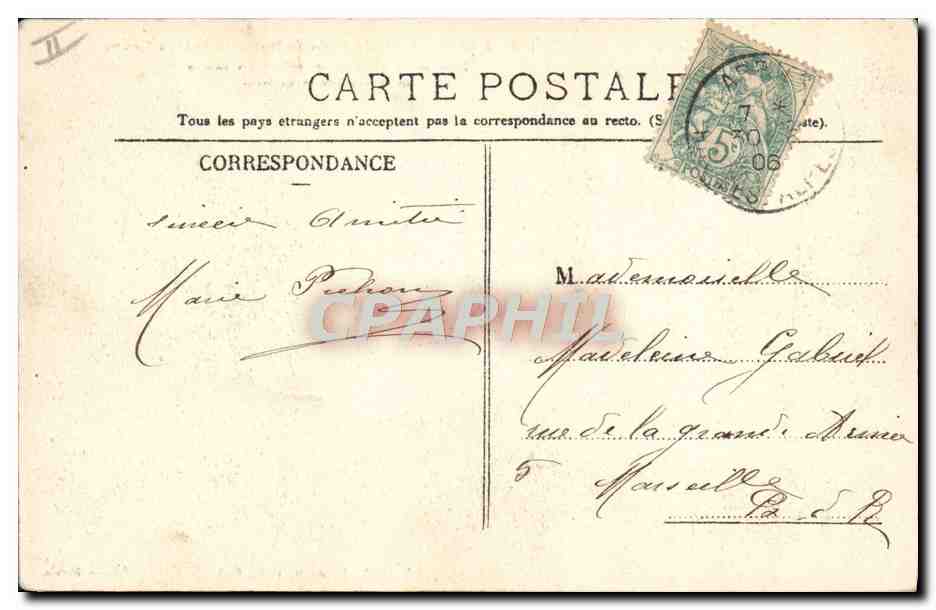 II
CARTE POSTALE
Tous les pays etrangers n'acceptent pas la correspondance au recto. (S ste).
CORRESPONDANCE
7
30
06
5c
sincère Amitié
Marie
CPAPHIL
Mademoiselle
Madeleine Gabriel
rue de la grande Armée
5
Marseille
B d R